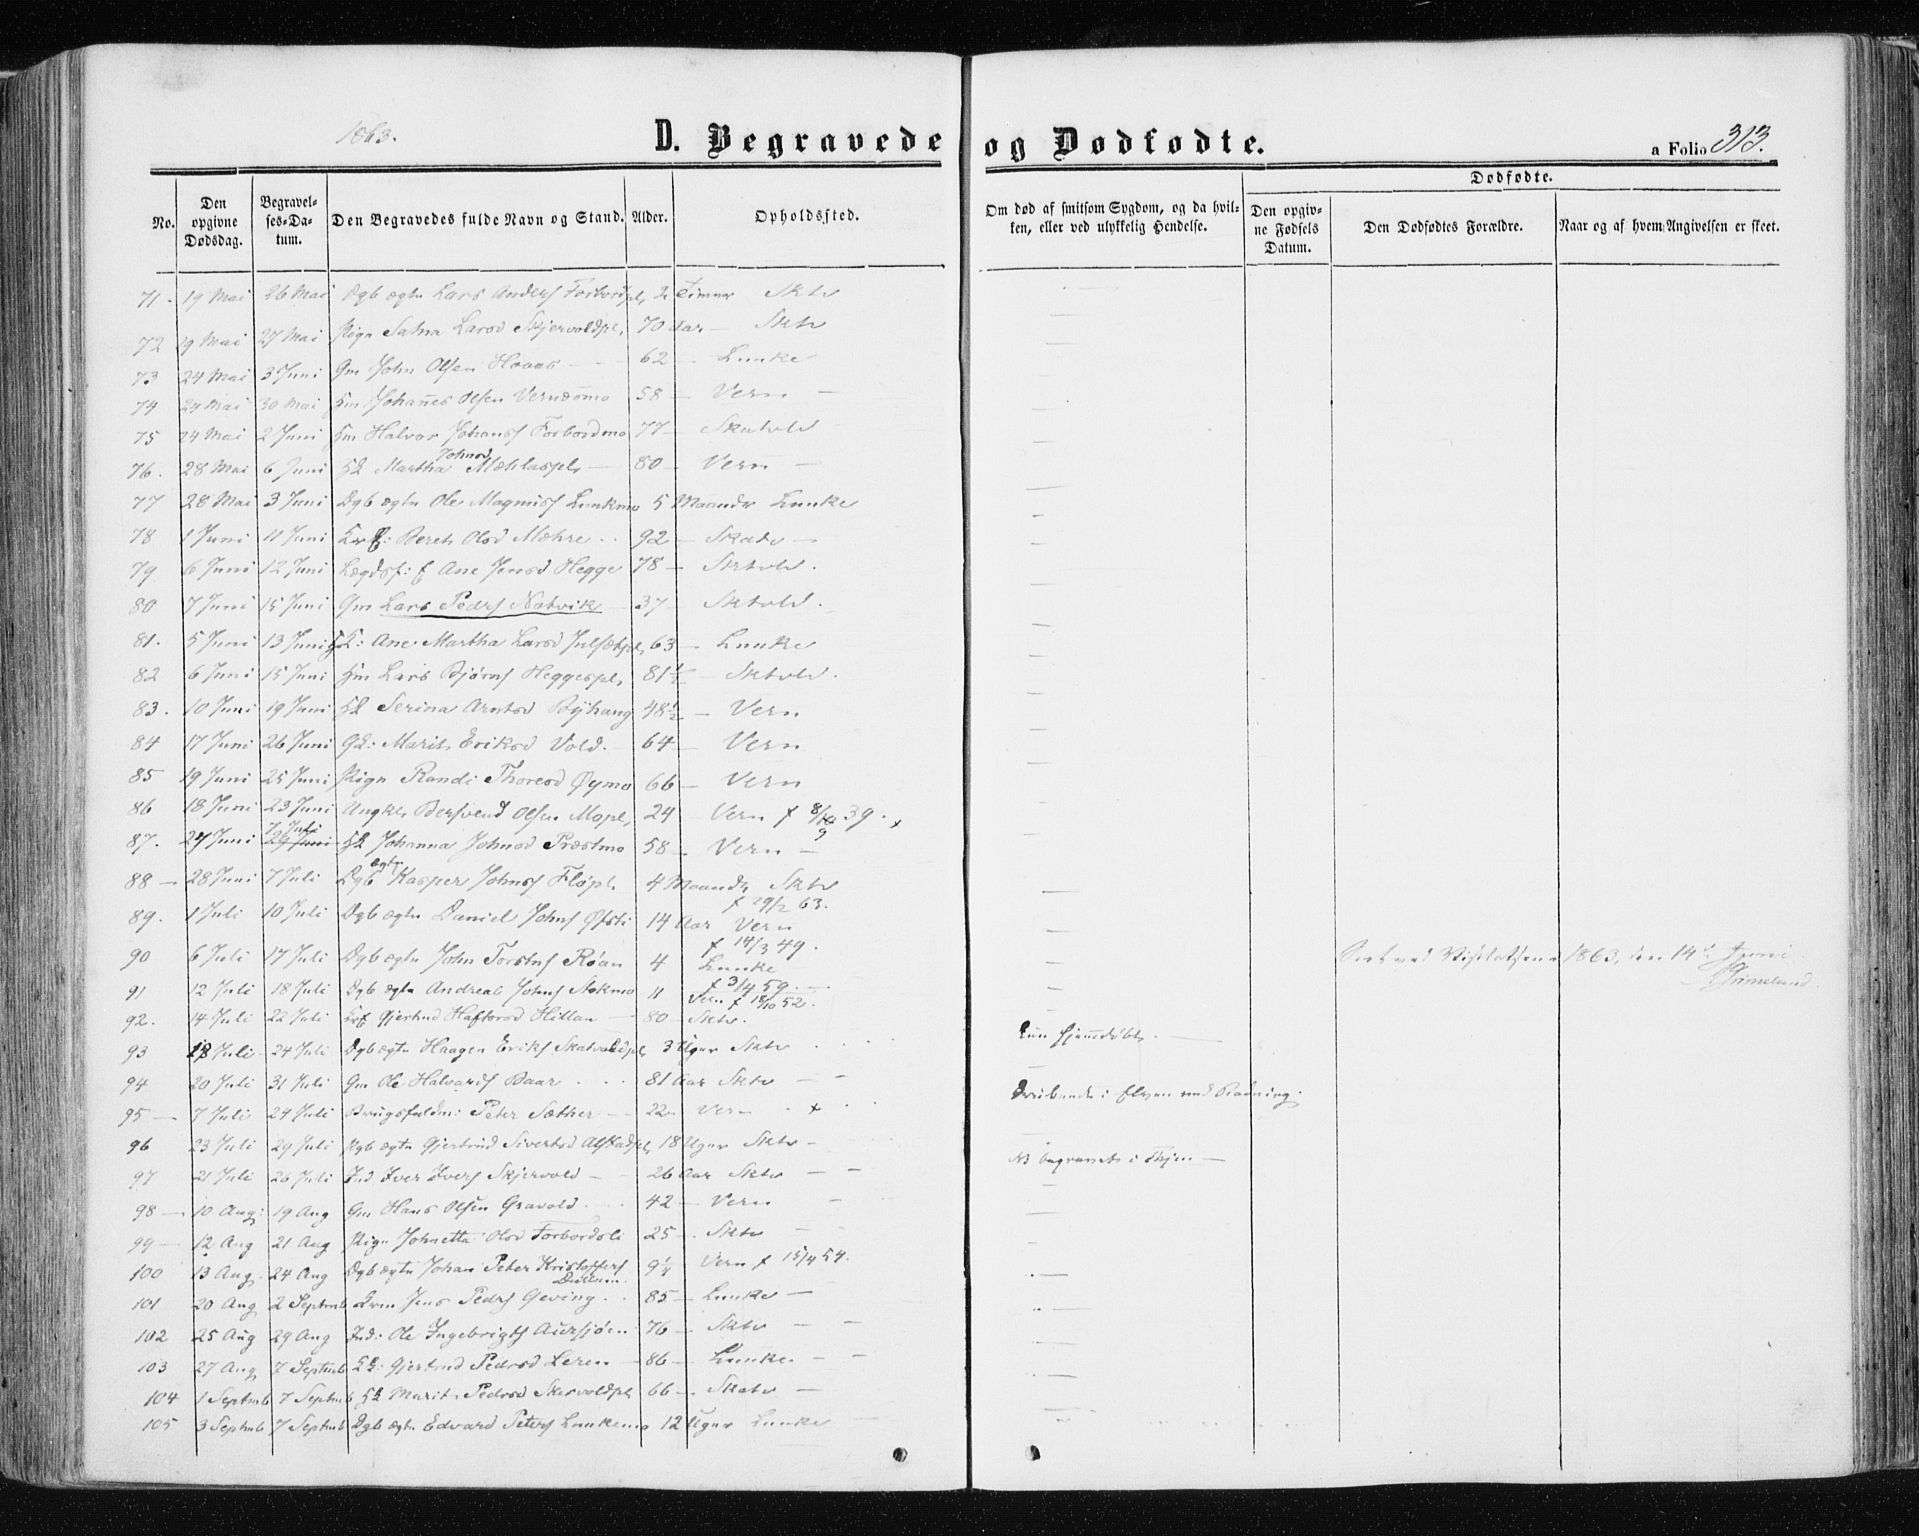 1863.
D. Begravede og Dødfødte.
a Folio 313.
No.
Den opgivne Dødsdag.
Begravelses-Datum.
Den Begravedes fulde Navn og Stand.
Alder.
Opholdssted.
Om død af smitsom Sygdom, og da hvilken, eller ved ulykkelig Hendelse.
Dødfødte.
Den opgivne Fødsels Datum.
Den Dødfødtes Forældre.
Naar og af hvem Angivelsen er skeet.
71. 19 Mai 26 Mai Dgb ægte Lars Anders Forbordpl, 2 Timer Sktv
72 19 Mai 27 Mai Pige Larsd Skjervoldpl, 70 Aar - Sktv
73 24 Mai 3 Juni Gm John Olsen - 62 - Lunke
74 24 Mai 30 Mai Johañes Olsen 58 - Vern -
75 24 Mai 2 Juni Halvor Johans Forbordmo 77 - Skatvld
76. 28 Mai 6 Juni Martha Johnsd - 80 - Vern -
77 28 Mai 3 Juni Dgb ægte Ole Magnus Lunkmo 5 Maander Lunke
78 1 Juni 11 Juni Beret Olsd Mæhre 92 - Skatv -
79 6 Juni 12 Juni Lægdsf: Ane Jensd Hegge 78 - Sktvld.
80 7 Juni 15 Juni Gm Lars Peders Nætvik 37 - Sktvld.
81. 5 Juni 13 Juni Ane Martha Larsd 63 - Lunke
82 6 Juni 15 Juni Lars Bjørns Heggespl, 81½ - Sktvld.
83. 10 Juni 19 Juni Serina Arntsd Byhaug 48½ - Vern
84 17 Juni 26 Juni Marit Eriksd Vold. - 64 - Vern
85 19 Juni 25 Juni Pige Randi Thoresd Øymo 66 - Vern
86 18 Juni 23 Juni Ungk. Bersvend Olsen Mopl, 24 - Vern f 8/10 39.
87. 27 Juni 7 Juli Johanna Johnsd Præstmo 58 - Vern -
88 - 28 Juni 7 Juli Dgb ægte Kasper Johns Fløpl. 4 Maander Sktv
f 29/2 63.
89. 1 Juli 10 Juli Dgb ægte Daniel Johns Øfsti 14 Aar Vern
f 14/3 49.
90 6 Juli 17 Juli Dgb ægte John Torstens Røan 4 Lunke
f 3/4 59.
91 12 Juli 18 Juli Dgb ægte Andreas Johns 11 Vern f 18/10 52.
92. 14 Juli 22 Juli Gjertrud Haftorsd - 80 - Sktv.
93 18 Juli - 24 Juli Dgb ægte Haagen Eriks Skatvoldpl, 3 Uger Sktv
94 20 Juli 31 Juli Gm Ole Halvords Baar 81 Aar Sktv - -
95 - 7 Juli 24 Juli Peter Sæther 22 - Vern
96 23 Juli 29 Juli Pgb ægte Gjertrud Sivertsd Alstadpl, 18 Uger Sktv -
97 21 Juli 26 Juli Ind Iver Ivers Skjervold - 26 Aar Sktv - -
98 - 10 Aug: 19 Aug Gm Hans Olsen Gravold 42 - Vern -
99 - 12 Aug 21 Aug Pige Johnetta Olsd Forbordsli 25 - Sktv - -
100 13 Aug. 24 Aug Dgb ægte Johan Peter Kristoffers 9¼ Vern f 15/4 54.
101 20 Aug 2 Septmb Jens Peders Geving 85 - Lunke -
102 25 Aug 29 Aug Ind: Ole Ingebrigts Auersjøen 76 - Sktv - -
103 27 Aug 7 Septmb Gjertrud Pedersd Leren - 86 - Lunke - -
104 1 Septmb 7 Septmb Marit Pedersd Skervoldpl 66 - Skatv -
105 3 Septmb 7 Septmb Dgb ægte Edvard Peters Lunkemo 12 Uger Lunke -
Seet ved Visitatsen 1863, den 14de Juni
Grimelund.
Kun hjemmedøbt. -
i Elven ved
NB begravet i -